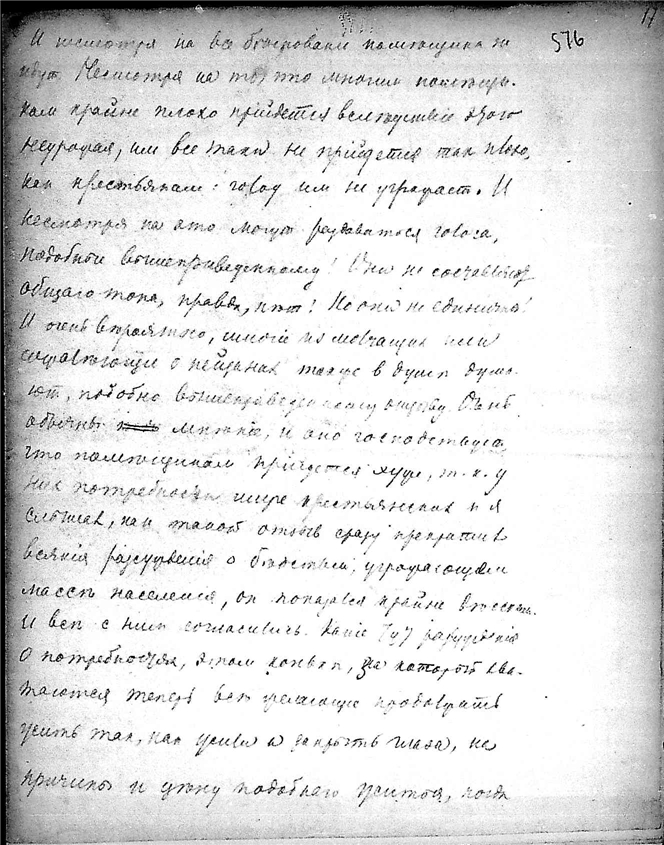 17
576
И несмотря на все помещики не
идут. Несмотря на то, что многим помещи-
кам крайне плохо прийдется вследствіе этого
неурожая, им все таки не прийдется так плохо,
как крестьянам: голод им не угрожает. И
несмотря на это могут раздаваться голоса,
подобные вышеприведенному! Они не составляют
общаго тона, правда, нѣт! Но они не единичны!
И очень вѣроятно, многіе из молчащих или
о также в душѣ дума-
ют, подобно вышеприведенному
мнѣніе, и оно господствует,
что помѣщикам прийдется хуже, т. к. у
них потребности шире крестьянских и я
слышал, как такой отзыв сразу прекратил
всякія разсужденія о бѣдствіи, угрожающем
массѣ населенія, он показался крайне вѣским.
И всѣ с ним согласились. Какіе тут разсужденія
о потребностях, этом коньке, за который хва-
таются теперь всѣ желающіе
жить так, как жили и закрыть глаза, на
причины и цѣну подобнаго житья, когда